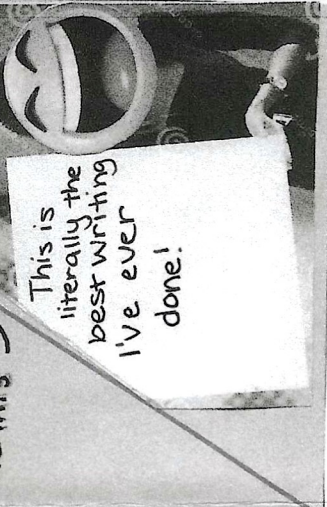 This is
literally the
best writing
I've ever
done!